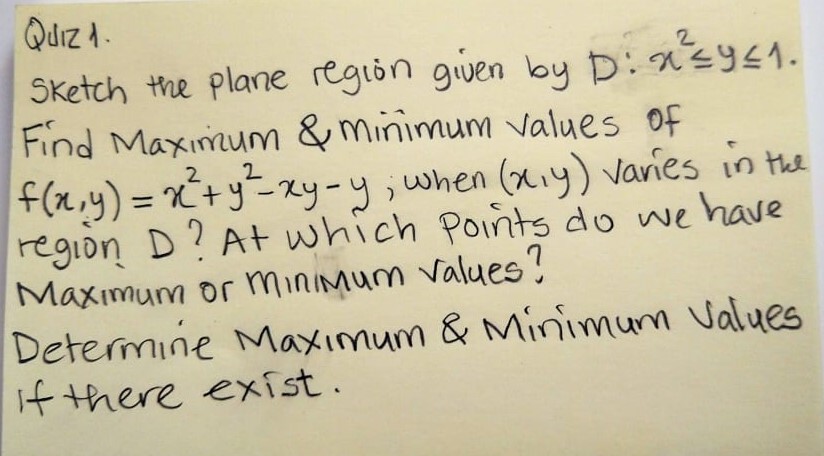 Quiz 1.
Sketch the plane region given by D: x²≤y≤1.
Find Maximum & minimum values of
f(x,y) = x²+y²-xy-y ; when (x,y) varies in the
region D? At which points do we have
Maximum or minimum values?
Determine Maximum & Minimum values
if there exist.